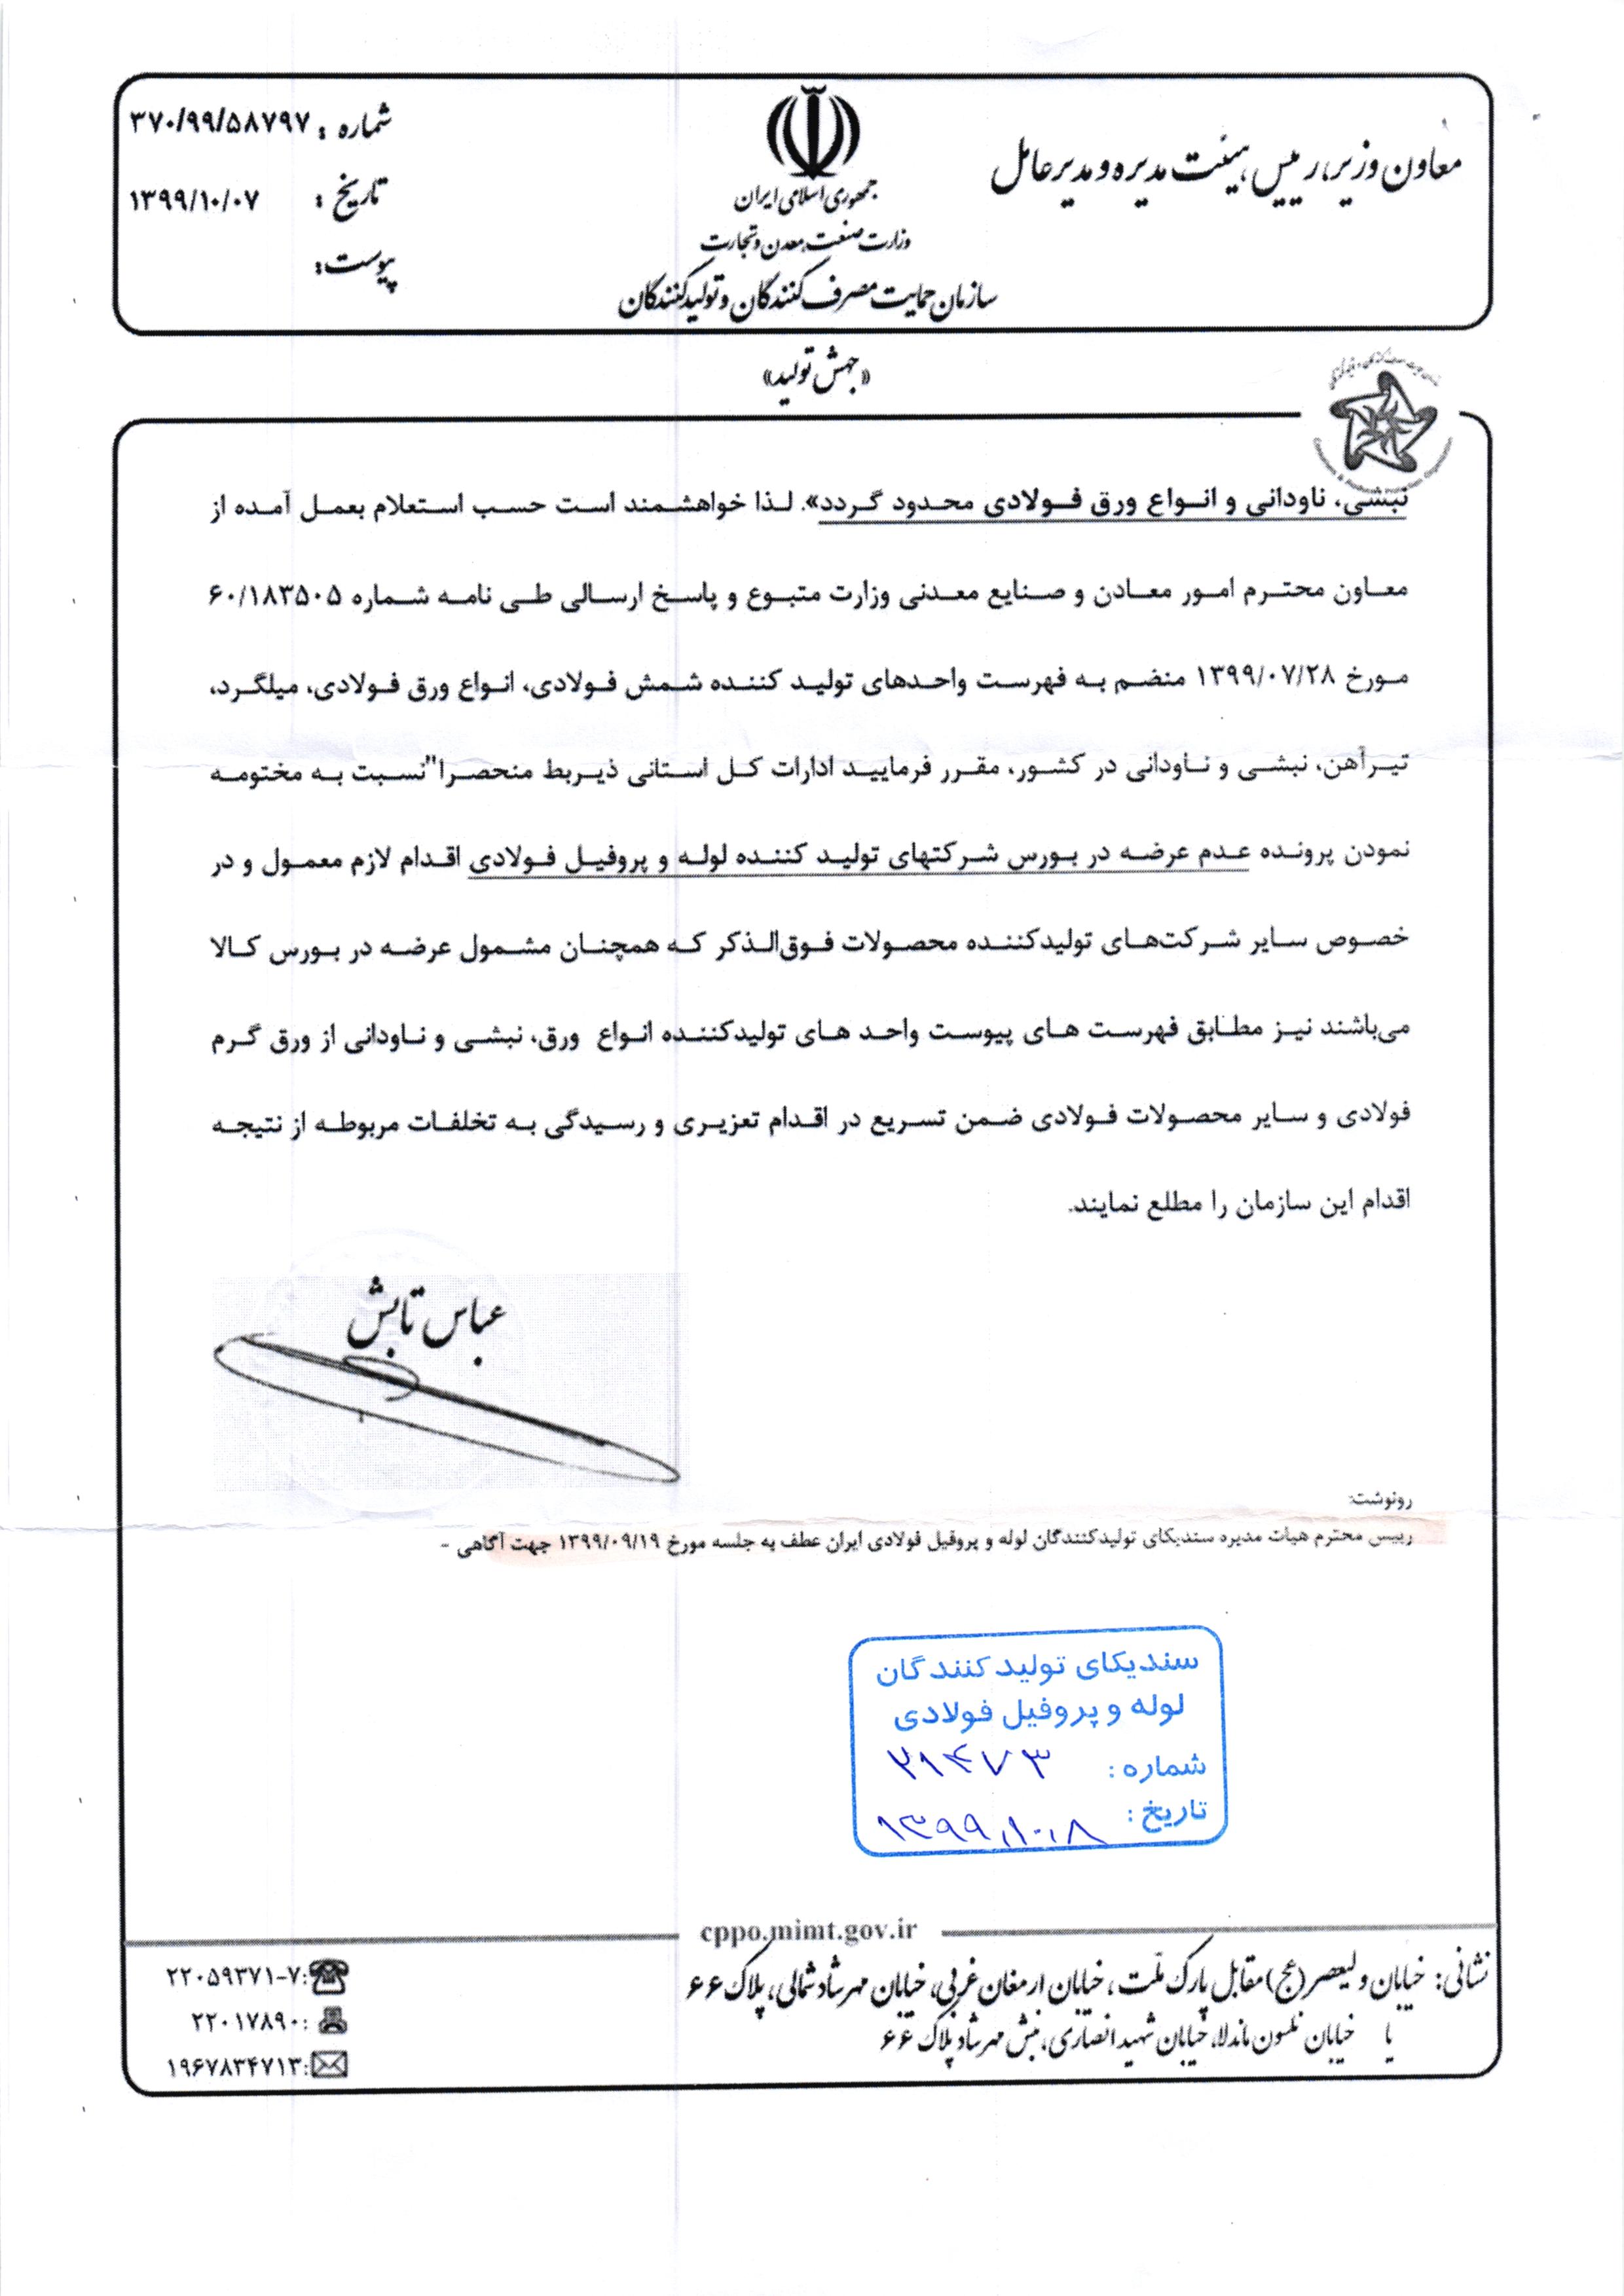 معاون وزیر، رییس هیئت مدیره و مدیرعامل
جمهوری اسلامی ایران
وزارت صنعت، معدن و تجارت
سازمان حمایت مصرف کنندگان و تولیدکنندگان
شماره : ۳۷۰/۹۹/۵۸۷۹۷
تاریخ : ۱۳۹۹/۱۰/۰۷
پیوست:
«جهش تولید»
نبشی، ناودانی و انواع ورق فولادی محدود گردد». لذا خواهشمند است حسب استعلام بعمل آمده از
معاون محترم امور معادن و صنایع معدنی وزارت متبوع و پاسخ ارسالی طی نامه شماره ۶۰/۱۸۳۵۰۵
مورخ ۱۳۹۹/۰۷/۲۸ منضم به فهرست واحدهای تولید کننده شمش فولادی، انواع ورق فولادی، میلگرد،
تیرآهن، نبشی و ناودانی در کشور، مقرر فرمایید ادارات کل استانی ذیربط منحصرا"نسبت به مختومه
نمودن پرونده عدم عرضه در بورس شرکتهای تولید کننده لوله و پروفیل فولادی اقدام لازم معمول و در
خصوص سایر شرکت‌های تولیدکننده محصولات فوق‌الذکر که همچنان مشمول عرضه در بورس کالا
می‌باشند نیز مطابق فهرست های پیوست واحد های تولیدکننده انواع ورق، نبشی و ناودانی از ورق گرم
فولادی و سایر محصولات فولادی ضمن تسریع در اقدام تعزیری و رسیدگی به تخلفات مربوطه از نتیجه
اقدام این سازمان را مطلع نمایند.
عباس تابش
رونوشت:
رییس محترم هیات مدیره سندیکای تولیدکنندگان لوله و پروفیل فولادی ایران عطف به جلسه مورخ ۱۳۹۹/۰۹/۱۹ جهت آگاهی -
سندیکای تولید کنندگان
لوله و پروفیل فولادی
شماره : ۲۱۴۷۳
تاریخ : ۱۳۹۹،۱۰،۸
cppo.mimt.gov.ir
نشانی: خیابان ولیعصر (عج) مقابل پارک ملت، خیابان ارمغان غربی، خیابان مهرشاد شمالی، پلاک ۶۶
یا خیابان نلسون ماندلا، خیابان شهید انصاری، نبش مهرشاد پلاک ۶۶
۲۲۰۵۹۳۷۱-۷:
۲۲۰۱۷۸۹۰:
۱۹۶۷۸۳۴۷۱۳: